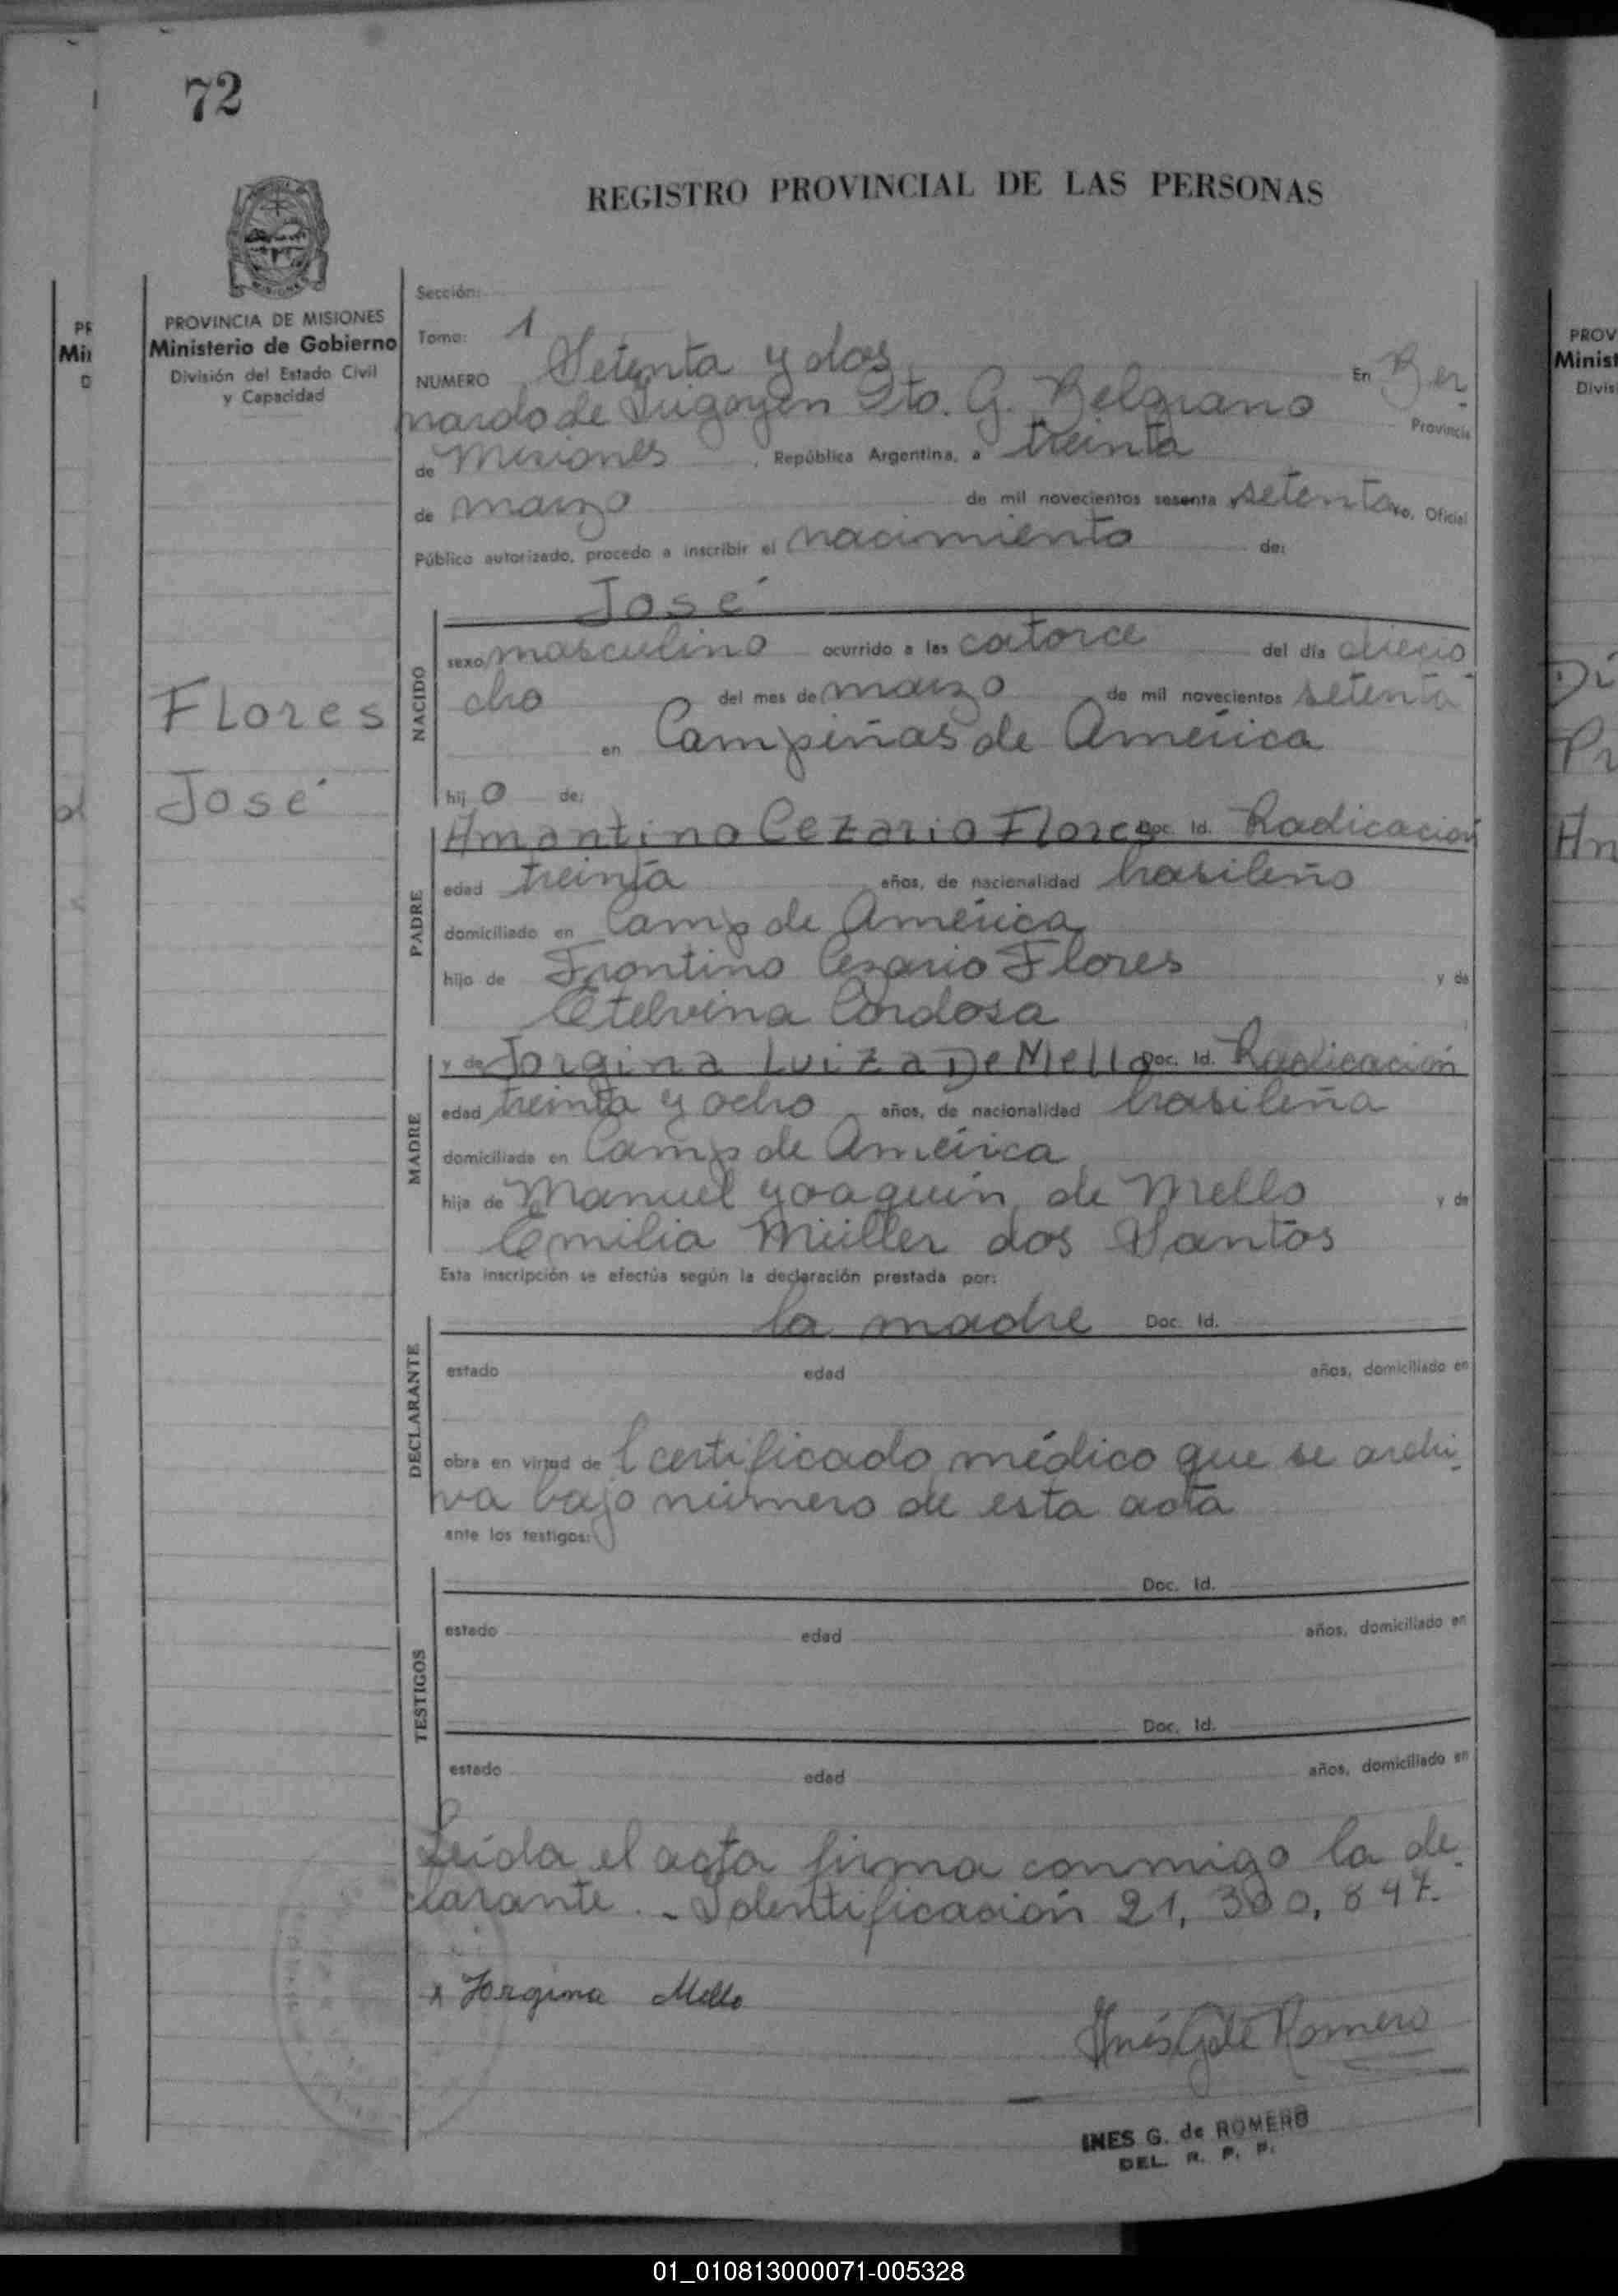 72
REGISTRO PROVINCIAL DE LAS PERSONAS
PROVINCIA DE MISIONES
Ministerio de Gobierno
División del Estado Civil
y Capacidad
Flores
José
Sección:
Tomo: 1
NUMERO Setenta y dos En Ber-
nardo de Irigoyen Dto. G. Belgrano Provincia
de Misiones, República Argentina, a treinta
de marzo de mil novecientos sesenta y setenta yo, Oficial
Público autorizado, procedo a inscribir el nacimiento de:
José
NACIDO
sexo masculino ocurrido a las catorce del día diecio-
cho del mes de marzo de mil novecientos setenta
en Campiñas de América
hij o de:
PADRE
Amantino Cezario Flores Doc. Id. Radicación
edad treinta años, de nacionalidad brasileño
domiciliado en Camp de América
hijo de Frontino Cezario Flores y de
Etelvina Cordosa
MADRE
y de Jorgina Luiza De Mello Doc. Id. Radicación
edad treinta y ocho años, de nacionalidad brasileña
domiciliada en Camp de América
hija de Manuel Yoaquín de Mello y de
Emilia Müller dos Santos
Esta inscripción se efectúa según la declaración prestada por:
DECLARANTE
la madre Doc. Id.
estado edad años, domiciliado en
obra en virtud de l certificado médico que se archi-
va bajo número de esta acta
ante los testigos:
TESTIGOS
Doc. Id.
estado edad años, domiciliado en
Doc. Id.
estado edad años, domiciliado en
Leída el acta firma conmigo la de-
clarante.- Identificación 21,300,847-
x Jorgina Mello
Inés G de Romero
INES G. de ROMERO
DEL. R. P. P.
PROV
Minist
Divis
01_010813000071-005328